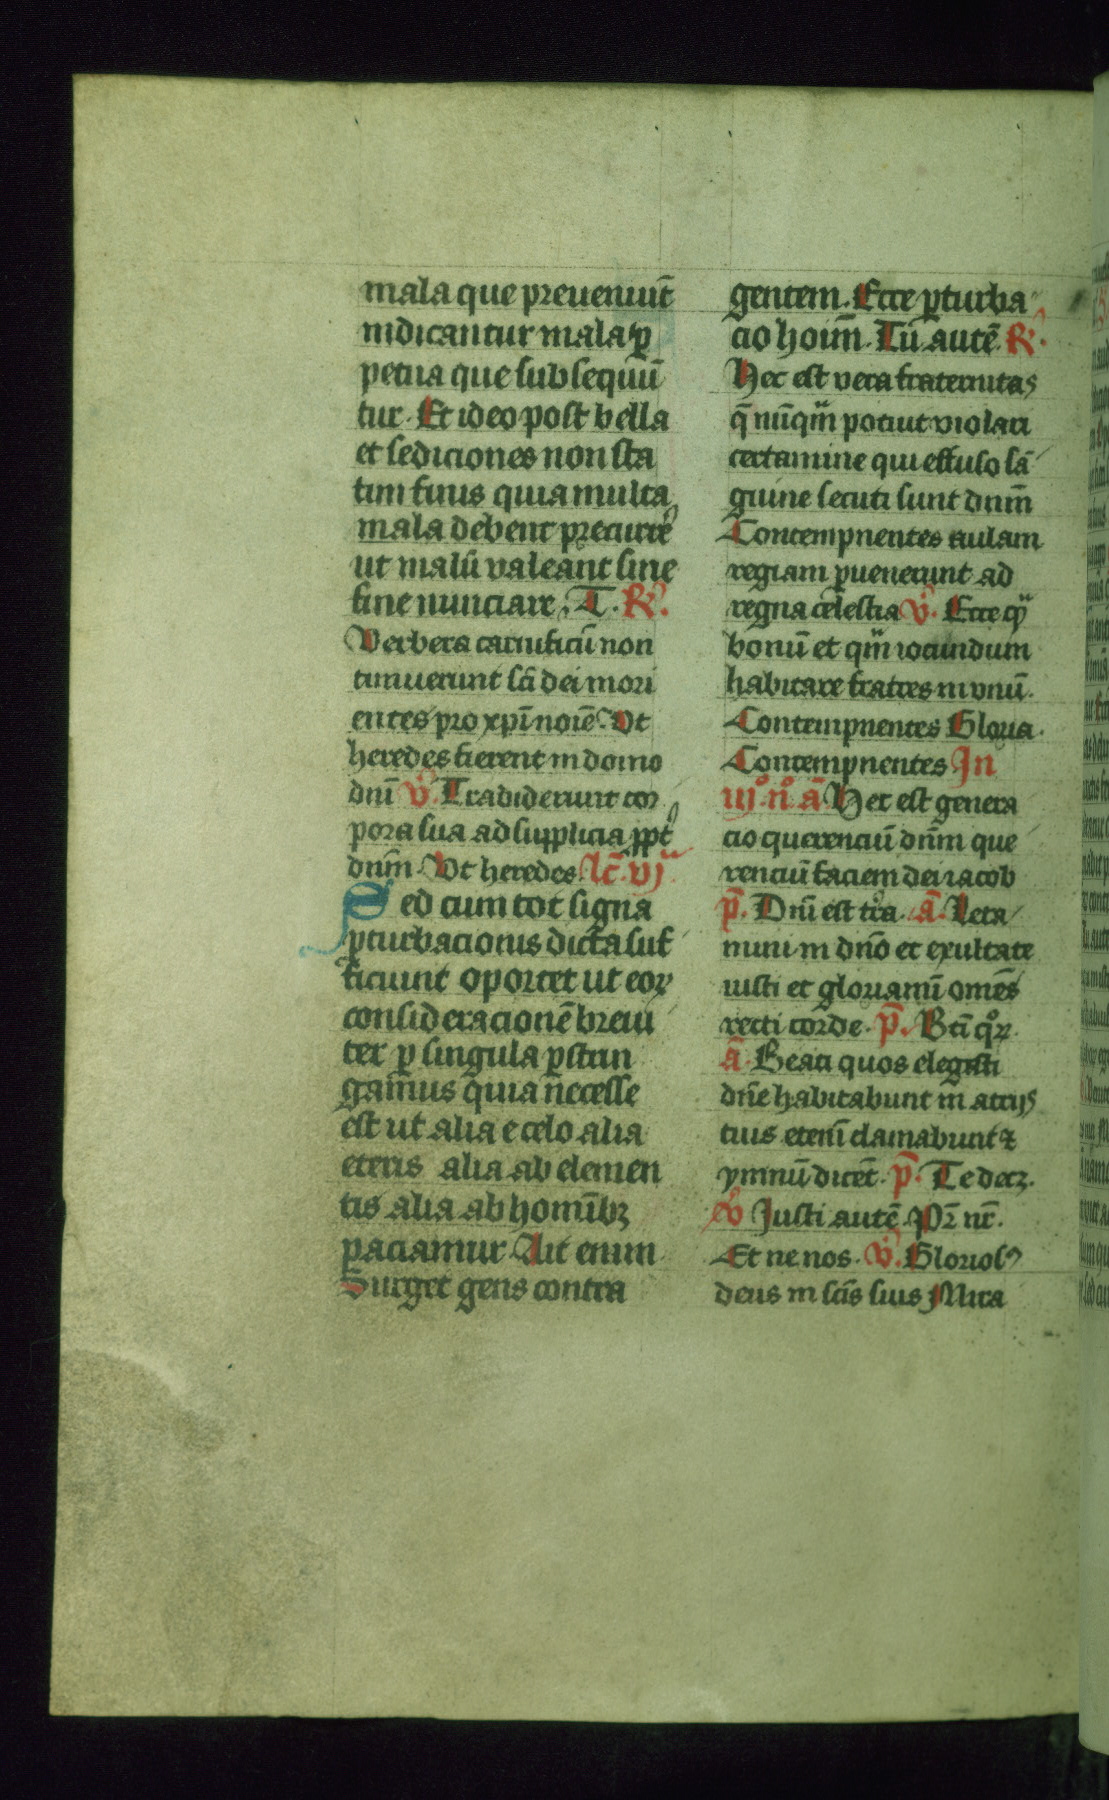 mala que preueniūt
indicantur mala ꝑ
petua que subsequū
tur. Et ideo post bella
et sediciones non sta
tim finis quia multa
mala debent precurrẽ
ut malū valeant sine
fine nunciare. T. R.
Verbera carnificū non
timuerunt sc̄i dei mori
entes pro xp̄i noīe Vt
heredes fierent in domo
dn̄i V. Tradiderunt cor
pora sua ad supplicia ꝓpt̾
dn̄m. Vt heredes. Lc̄. vj
Sed cum tot signa
ꝑturbacionis dicta suf
ficiunt oportet ut eoꝝ
consideracionē breui
ter ꝑ singula ꝑstrin
gamus quia necesse
est ut alia e celo alia
e terris alia ab elemen
tis alia ab homīb;
paciamur. Ait enim
Surget gens contra
gentem. Ecce ꝑturba
cio hoīm. Tū autē. R.
Hec est vera fraternitas
q̄ nūq̄m potuit violari
certamine qui effuso sā
guine secuti sunt dn̄m
Contempnentes aulam
regiam ꝑuenerunt ad
regna celestia V. Ecce q̄
bonū et q̄m iocundum
habitare fratres in vnū.
Contempnentes Gloria.
Contempnentes In
iij. n̊. a. Hec est genera
cio querenciū dn̄m que
renciū faciem dei iacob
p̄. Dn̄i est tr̄a. a. Leta
mini in dn̄o et exultate
iusti et gloriamī omēs
recti corde. p̄. Bt̄i qͦꝝ
a. Beati quos elegisti
dn̄e habitabunt in atrijs
tuis etenī clamabunt ⁊
ymnū dicēt. p̄. Te decꝫ.
V Iusti autē. Pr̄ nr̄.
Et ne nos. V. Gloriosꝰ
deus in sc̄is suis Mira